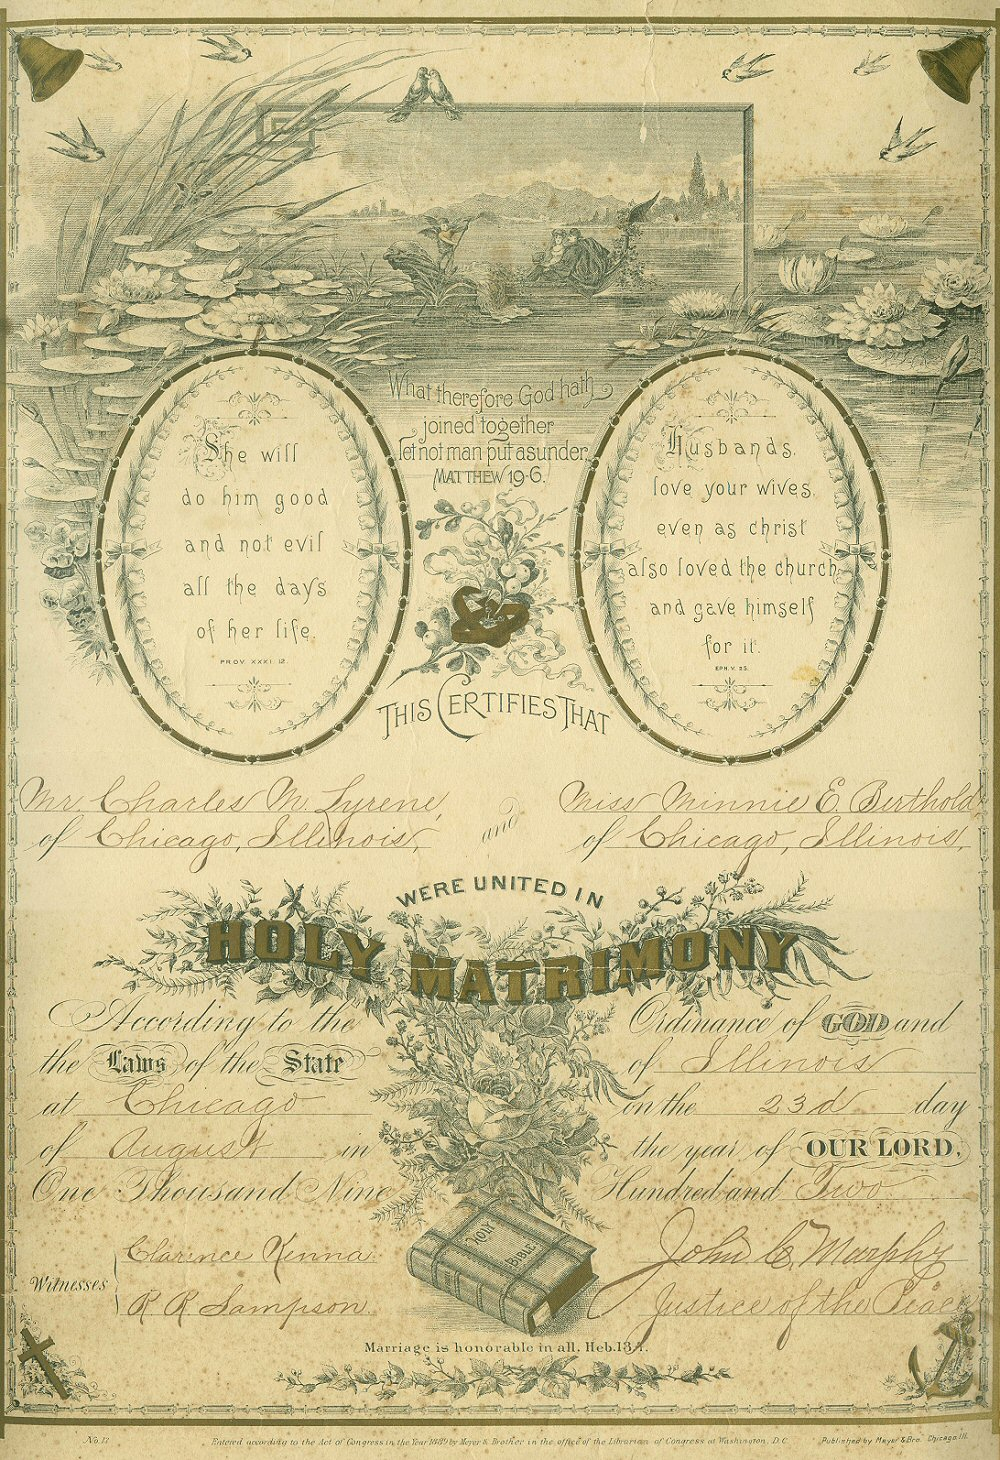 What therefore God hath
joined together
let not man put asunder.
MATTHEW 19-6.
She will
do him good
and not evil
all the days
of her life.
PROV. XXXI. 12.
Husbands,
love your wives,
even as christ
also loved the church,
and gave himself
for it.
EPH. V. 25.
THIS CERTIFIES THAT
Mr. Charles M. Lyrene,
of Chicago, Illinois,
and
Miss Minnie E. Berthold
of Chicago, Illinois,
WERE UNITED IN
HOLY MATRIMONY
According to the Ordinance of GOD and
the Laws of the State of Illinois
at Chicago on the 23d day
of August in the year of OUR LORD,
One Thousand Nine Hundred and Two
Witnesses
Clarence Kenna
R R Sampson
John C. Murphy
Justice of the Peace
HOLY BIBLE
Marriage is honorable in all. Heb. 13,4.
No. 17
Entered according to the Act of Congress in the Year 1889 by Meyer & Brother in the office of the Librarian of Congress at Washington, D.C.
Published by Meyer & Bro. Chicago. Ill.